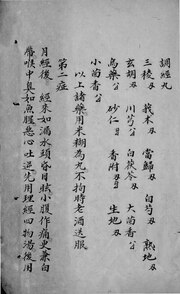 調經丸
三棱刄 莪朮刄 當歸刄 白芍刄 熟地刄
玄胡刄 川芎刄 白茯苓刄 大茴香刄
烏藥刄 砂仁刄 香附刄 生地刄
小茴香刄
以上諸藥用米糊為丸不拘時老酒送服
第二症
月經後 經來如漏水頭昏目眩小腹作痛更兼白
帶喉中臭如魚腥惡心吐逆先用理經四物湯後用